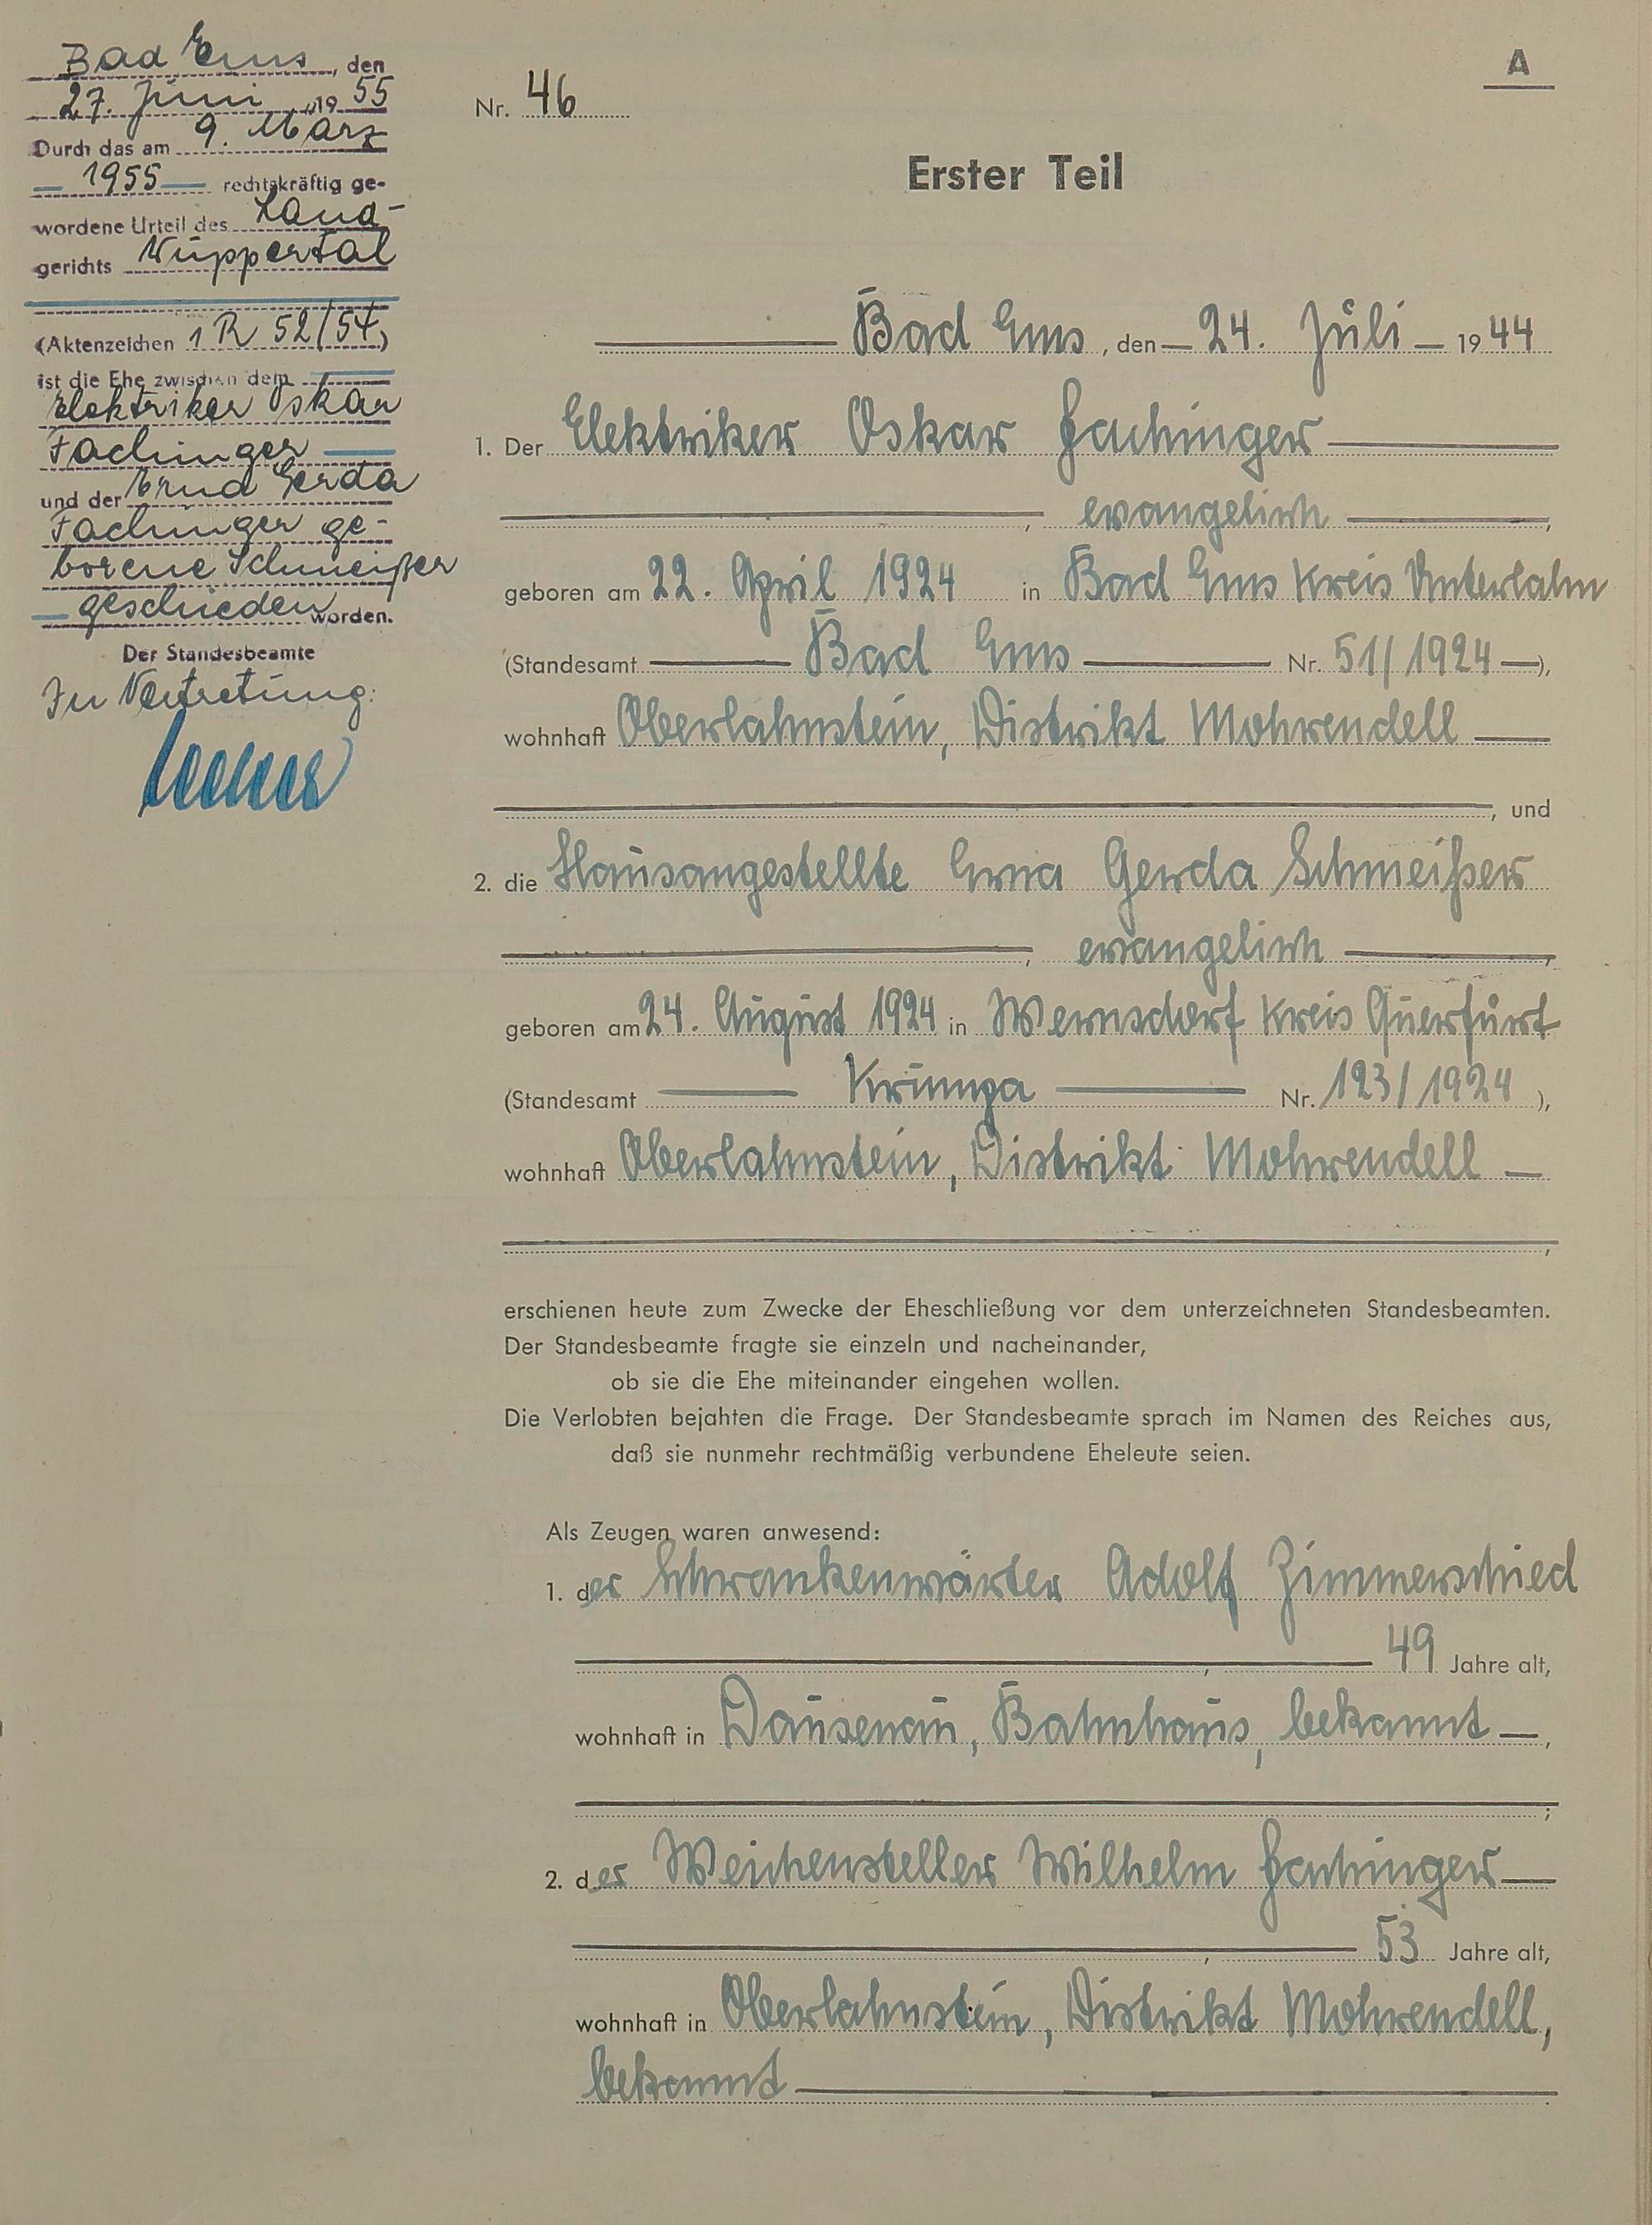 Bad Ems, den
27. Juni 1955
Durch das am 9. März
1955 rechtskräftig ge-
wordene Urteil des Land-
gerichts Wuppertal
(Aktenzeichen 1 R 52/54)
ist die Ehe zwischen dem
Elektriker Oskar
Fachinger
und der Erna Gerda
Fachinger ge-
borene Schmeißer
geschieden worden.
Der Standesbeamte
In Vertretung:
A
Nr. 46
Erster Teil
Bad Ems, den 24. Juli 1944
1. Der Elektriker Oskar Fachinger
, evangelisch,
geboren am 22. April 1924 in Bad Ems Kreis Unterlahn
(Standesamt Bad Ems Nr. 51/1924),
wohnhaft Oberlahnstein, Distrikt Mohrendell
, und
2. die Hausangestellte Erna Gerda Schmeißer
, evangelisch,
geboren am 24. August 1924 in Wernsdorf Kreis Querfurt
(Standesamt Krumpa Nr. 123/1924),
wohnhaft Oberlahnstein, Distrikt Mohrendell
,
erschienen heute zum Zwecke der Eheschließung vor dem unterzeichneten Standesbeamten.
Der Standesbeamte fragte sie einzeln und nacheinander,
ob sie die Ehe miteinander eingehen wollen.
Die Verlobten bejahten die Frage. Der Standesbeamte sprach im Namen des Reiches aus,
daß sie nunmehr rechtmäßig verbundene Eheleute seien.
Als Zeugen waren anwesend:
1. der Schrankenwärter Adolf Zimmerschied
, 49 Jahre alt,
wohnhaft in Dausenau, Bahnhaus, bekannt,
;
2. der Weichensteller Wilhelm Fachinger
, 53 Jahre alt,
wohnhaft in Oberlahnstein, Distrikt Mohrendell,
bekannt.